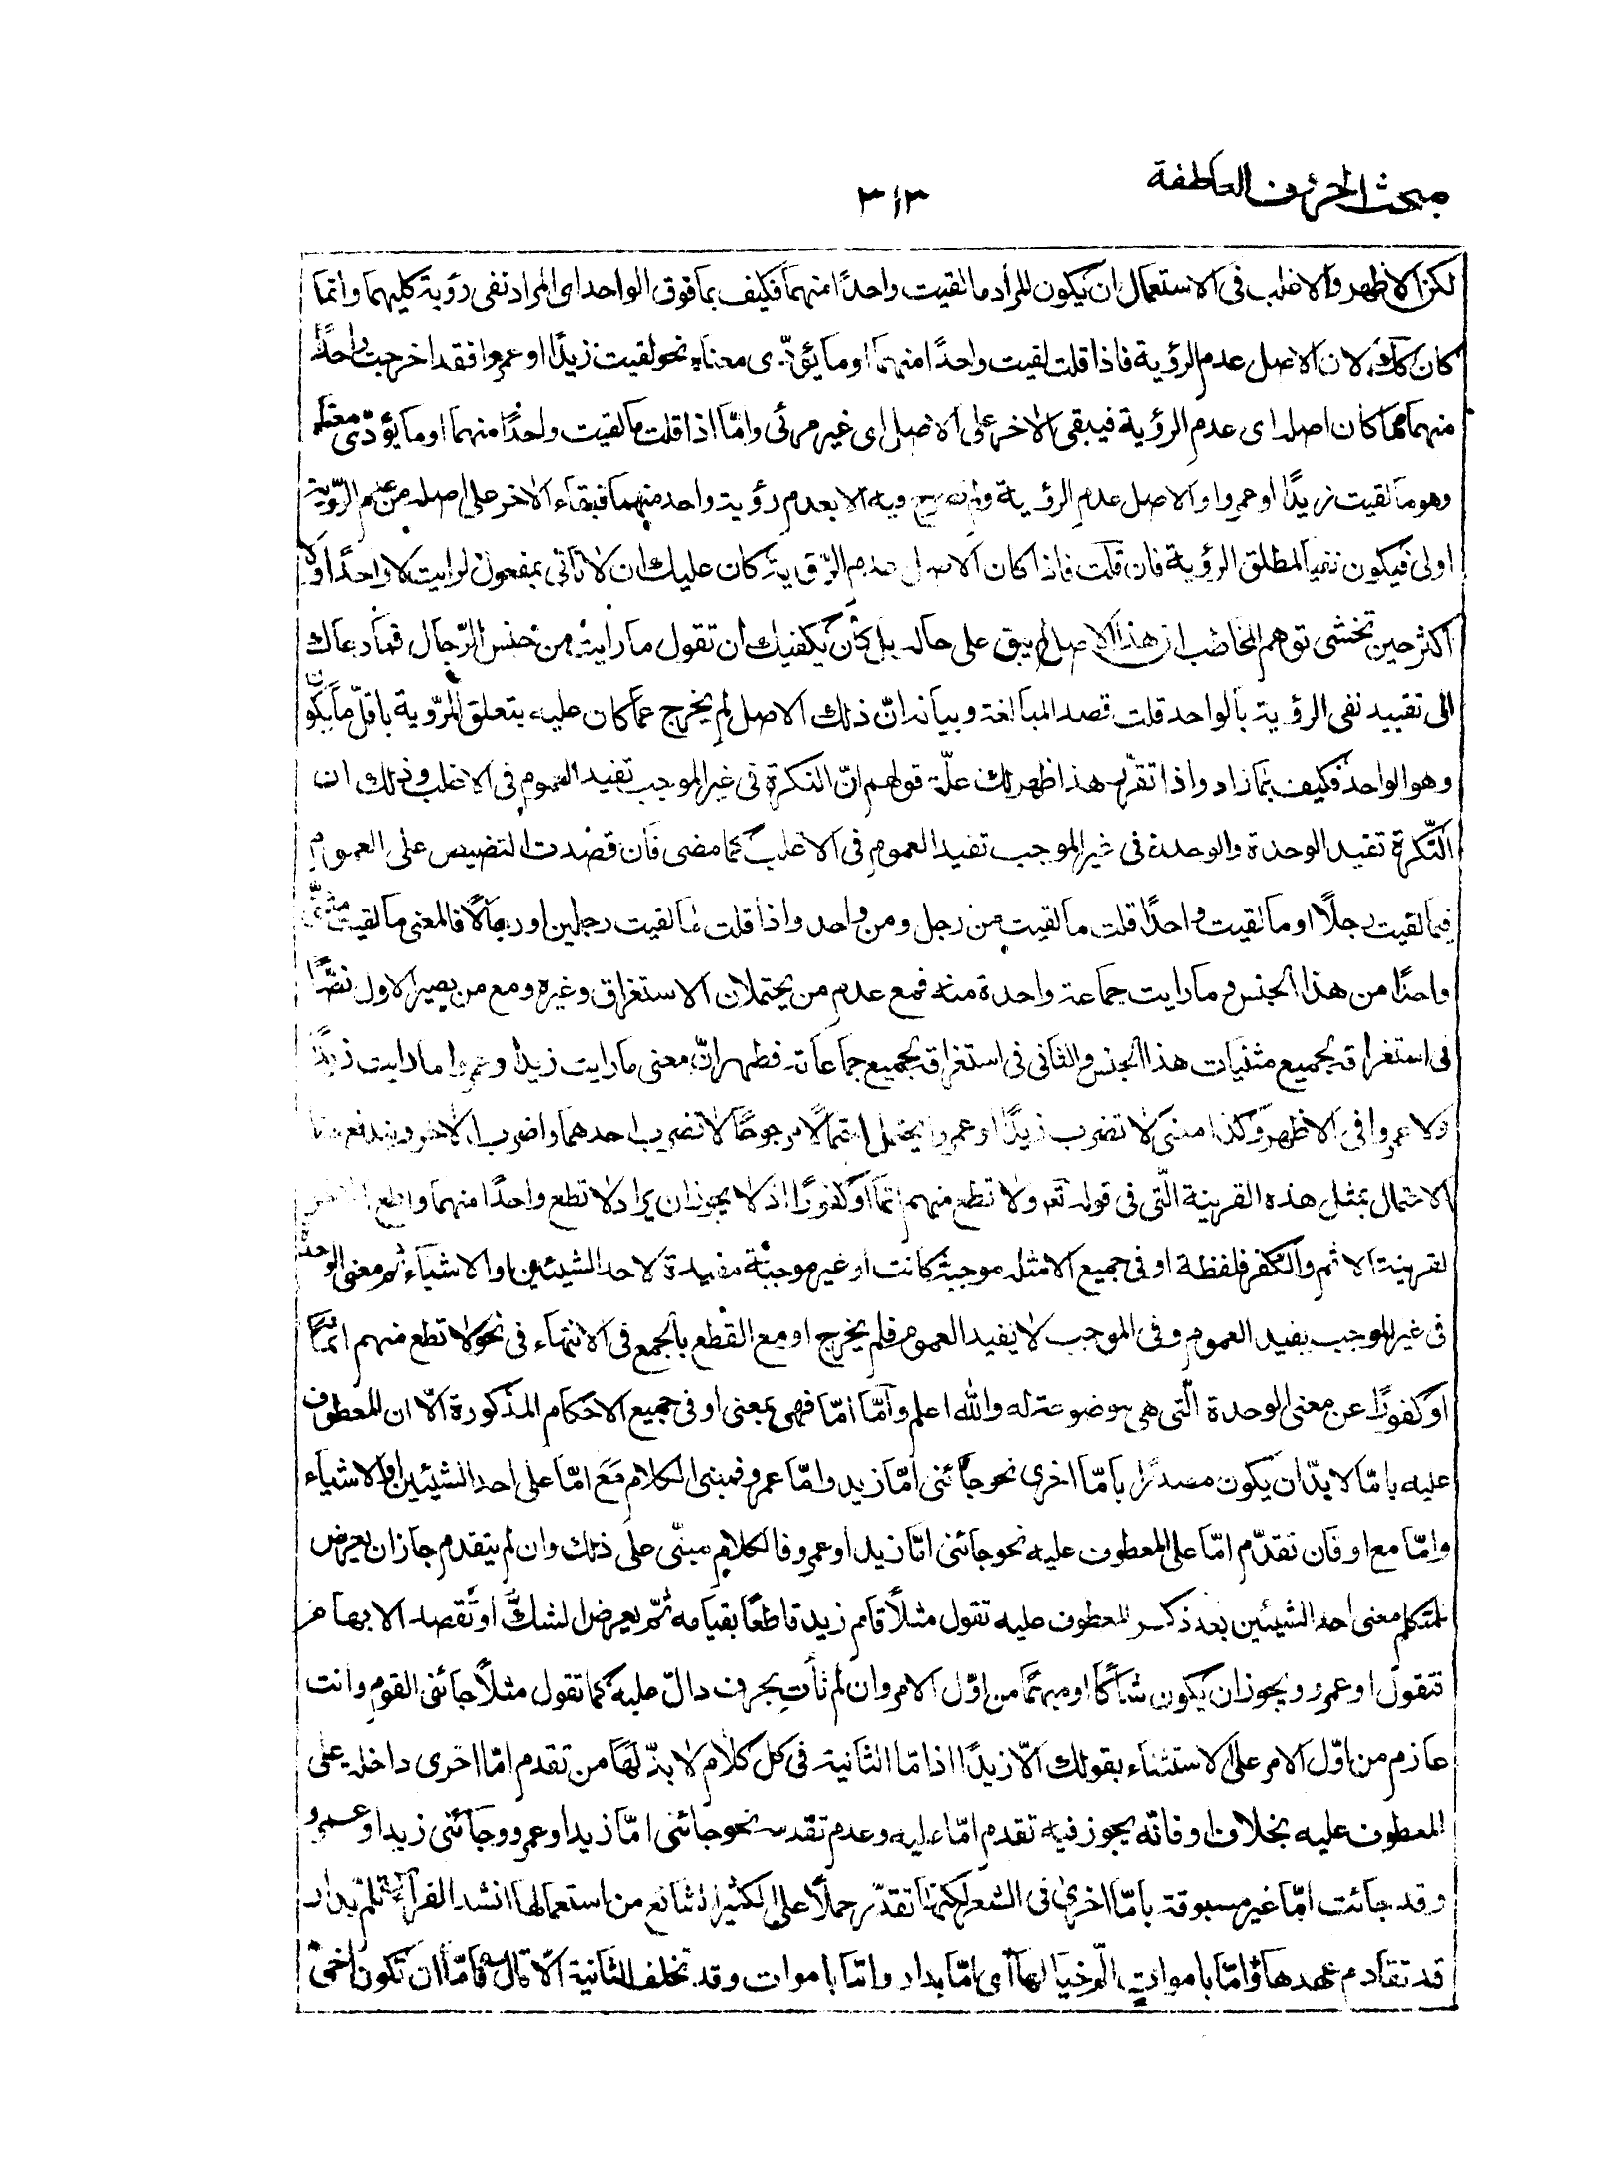 مبحث الحروف العاطفة
٣١٣
لكن الاظهر والاغلب فى الاستعمال ان يكون المراد ما لقيت واحدًا منهما فكيف بما فوق الواحد اى المراد نفى رؤية كليهما وانما
كان كك لان الاصل عدم الرؤية فاذا قلت لقيت واحدًا منهما او ما يؤدّى معناه نحو لقيت زيدًا او عمروا فقد اخرجت واحدًا
منهما مما كان اصله اى عدم الرؤية فيبقى الاخر على الاصل اى غير مرئى وامّا اذا قلت ما لقيت واحدًا منهما او ما يؤدّى معناه
وهو ما لقيت زيدًا او عمروا والاصل عدم الرؤية ولم تصرح فيه الا بعدم رؤية واحد منهما فبقاء الاخر على اصله من عدم الرّؤية
اولى فيكون نفيا لمطلق الرؤية فان قلت فاذا كان الاصل عدم الرّؤية كان عليك ان لا تأتى بمفعول لرايت لا واحدًا ولا
اكثر حين تخشى توهم المخاطب ان هذا الاصل لم يبق على حاله بل كان يكفيك ان تقول ما رايت من جنس الرّجال فما دعاك
الى تقييد نفى الرؤية بالواحد قلت قصد المبالغة وبيانه انّ ذلك الاصل لم يخرج عما كان عليه بتعلق الرّؤية باقلّ ما يكون
وهو الواحد فكيف بما زاد واذا تقرّر هذا ظهر لك علّة قولهم انّ النكرة فى غير الموجب تفيد العموم فى الاغلب وذلك ان
النّكرة تفيد الوحدة والوحدة فى غير الموجب تفيد العموم فى الاغلب كما مضى فان قصدت التنصيص على العموم
فى ما لقيت رجلًا او ما لقيت واحدًا قلت ما لقيت من رجل ومن واحد واذا قلت ما لقيت رجلين او رجالًا فالمعنى ما لقيت مثنّى
واحدًا من هذا الجنس وما رايت جماعة واحدة منه فمع عدم من يحتملان الاستغراق وغيره ومع من يصير الاول نصًّا
فى استغراقه لجميع مثنيات هذا الجنس والثانى فى استغراقه لجميع جماعاته فظهر انّ معنى ما رايت زيدا وعمروا ما رايت زيدًا
ولا عمروا فى الاظهر وكذا معنى لا تضرب زيدًا او عمروا يحتمل احتمالًا مرجوحًا لا تضرب احدهما واضرب الاخر ويندفع هذا
الاحتمال بمثل هذه القرينة الّتى فى قوله تعه ولا تطع منهم اثما او كفورًا اذ لا يجوز ان يراد لا تطع واحدًا منهما واطع الاخر
لقرينة الاثم والكفر فلفظة او فى جميع الامثله موجبة كانت او غير موجبة مفيدة لاحد الشيئين او الاشياء ثم معنى الوحدة
فى غير الموجب يفيد العموم وفى الموجب لا يفيد العموم فلم يخرج او مع القطع بالجمع فى الانتهاء فى نحو لا تطع منهم اثمًا
او كفورًا عن معنى الوحدة الّتى هى موضوعة له والله اعلم وامّا امّا فهى بمعنى او فى جميع الاحكام المذكورة الّا ان المعطوف
عليه بامّا لا بدّ ان يكون مصدرًا بامّا اخرى نحو جائنى امّا زيد وامّا عمرو فمبنى الكلام مع امّا على احد الشيئين او الاشياء
وامّا مع او فان تقدّم امّا على المعطوف عليه نحو جائنى امّا زيد او عمرو فالكلام مبنّى على ذلك وان لم يتقدم جاز ان يعرض
للمتكلم معنى احد الشيئين بعد ذكر المعطوف عليه تقول مثلًا قام زيد قاطعًا بقيامه ثمّ يعرض الشكّ او تقصد الابهام
فتقول او عمرو ويجوز ان يكون شاكًا او مبهمًا من اوّل الامر وان لم تأتِ بحرف دالّ عليه كما تقول مثلًا جائنى القوم وانت
عازم من اوّل الامر على الاستثناء بقولك الّا زيدًا اذ امّا الثانية فى كل كلام لا بدّ لها من تقدم امّا اخرى داخله على
المعطوف عليه بخلاف او فانّه يجوز فيه تقدم امّا عليه وعدم تقدمه نحو جائنى امّا زيد او عمرو وجائنى زيد او عمرو
وقد جائت امّا غير مسبوقة بامّا اخرى فى الشعر لكنها تقدّر حملًا على الكثير الشائع من استعمالها انشد الفرّاء تلمّ بدار
قد تقادم عهدها وامّا باموات الّم خيالها اى امّا بدار وامّا باموات وقد تخلف الثانية الّا قال فامّا ان تكون اخى